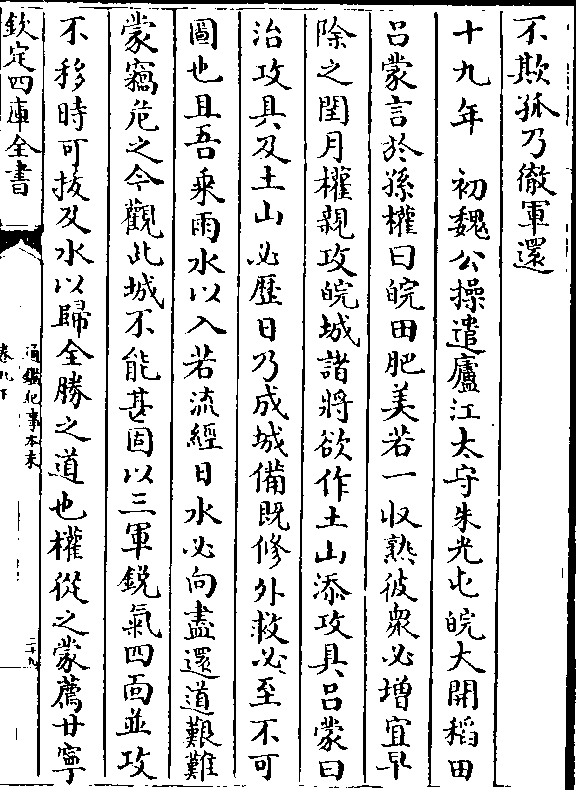 不欺孤乃徹軍還
十九年　初魏公操遣廬江太守朱光屯皖大開稻田
吕蒙言於孫權曰皖田肥美若一收熟彼衆必增宜早
除之閏月權親攻皖城諸將欲作土山添攻具吕蒙曰
治攻具及土山必歴日乃成城備既修外救必至不可
圖也且吾乘雨水以入若流經日水必向盡還道艱難
蒙竊危之今觀此城不能甚固以三軍鋭氣四面並攻
不移時可拔及水以歸全勝之道也權從之蒙薦甘寧
欽定四庫全書
通鑑紀事本末
卷九下
二十九